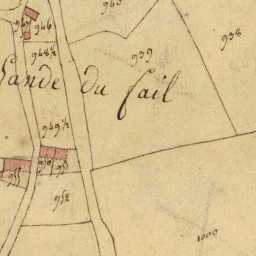 940
946
948½
939
938
Lande du fail
949½
950
952
1000